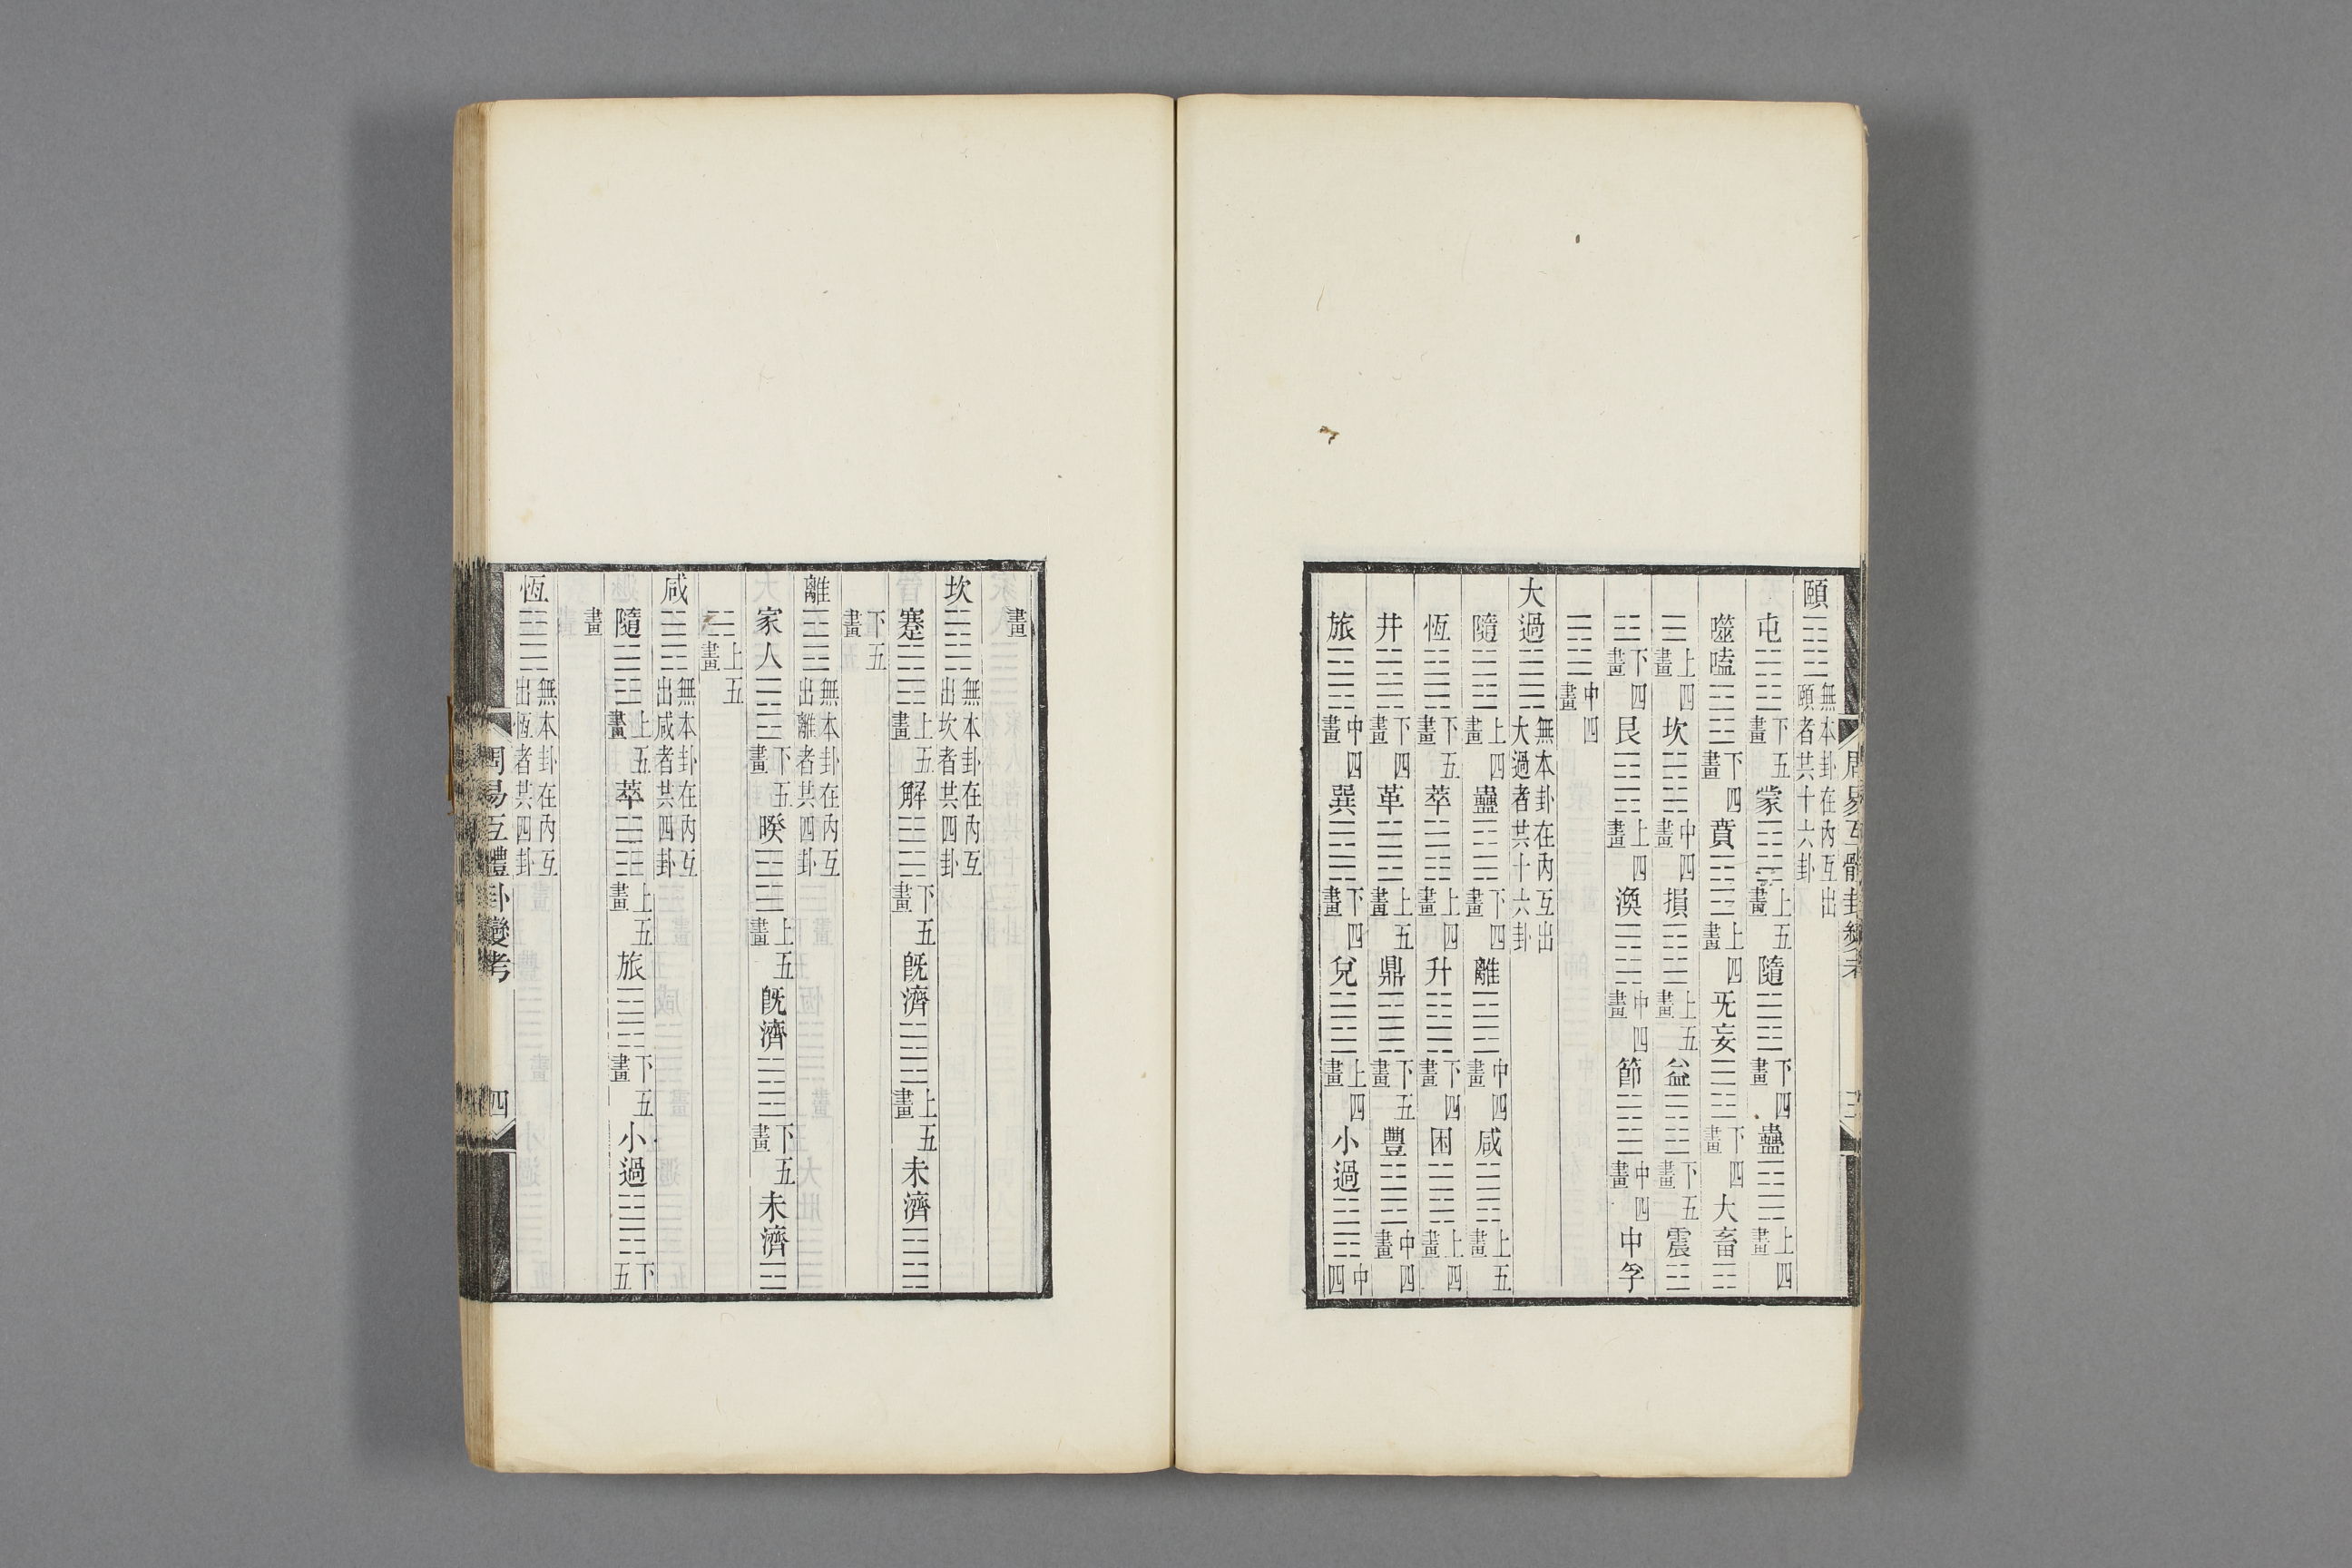 周易互體卦變考
三
頤䷚無本卦在內互出頤者共十六卦
屯䷂下五畫蒙䷃上五畫隨䷐下四畫蠱䷑上四畫
噬嗑䷔下四畫賁䷕上四畫无妄䷘下四畫大畜☶
☰上四畫坎䷜中四畫損䷨上五畫益䷩下五畫震☳
☳下四畫艮䷳上四畫渙䷺中四畫節䷻中四畫中孚
䷼中四畫
大過䷛無本卦在內互出大過者共十六卦
隨䷐上四畫蠱䷑下四畫離䷝中四畫咸䷞上五畫
恆䷟下五畫萃䷬上四畫升䷭下四畫困䷮上四畫
井䷯下四畫革䷰上五畫鼎䷱下五畫豐䷶中四畫
旅䷷中四畫巽䷸下四畫兌䷹上四畫小過䷽中四
畫
坎䷜無本卦在內互出坎者共四卦
蹇䷦上五畫解䷧下五畫旣濟䷾上五畫未濟䷿
下五畫
離䷝無本卦在內互出離者共四卦
家人䷤下五畫睽䷥上五畫旣濟䷾下五畫未濟☲
☵上五畫
咸䷞無本卦在內互出咸者共四卦
隨䷐上五畫萃䷬上五畫旅䷷下五畫小過䷽下五
畫
恆䷟無本卦在內互出恆者共四卦
周易互體卦變考
四